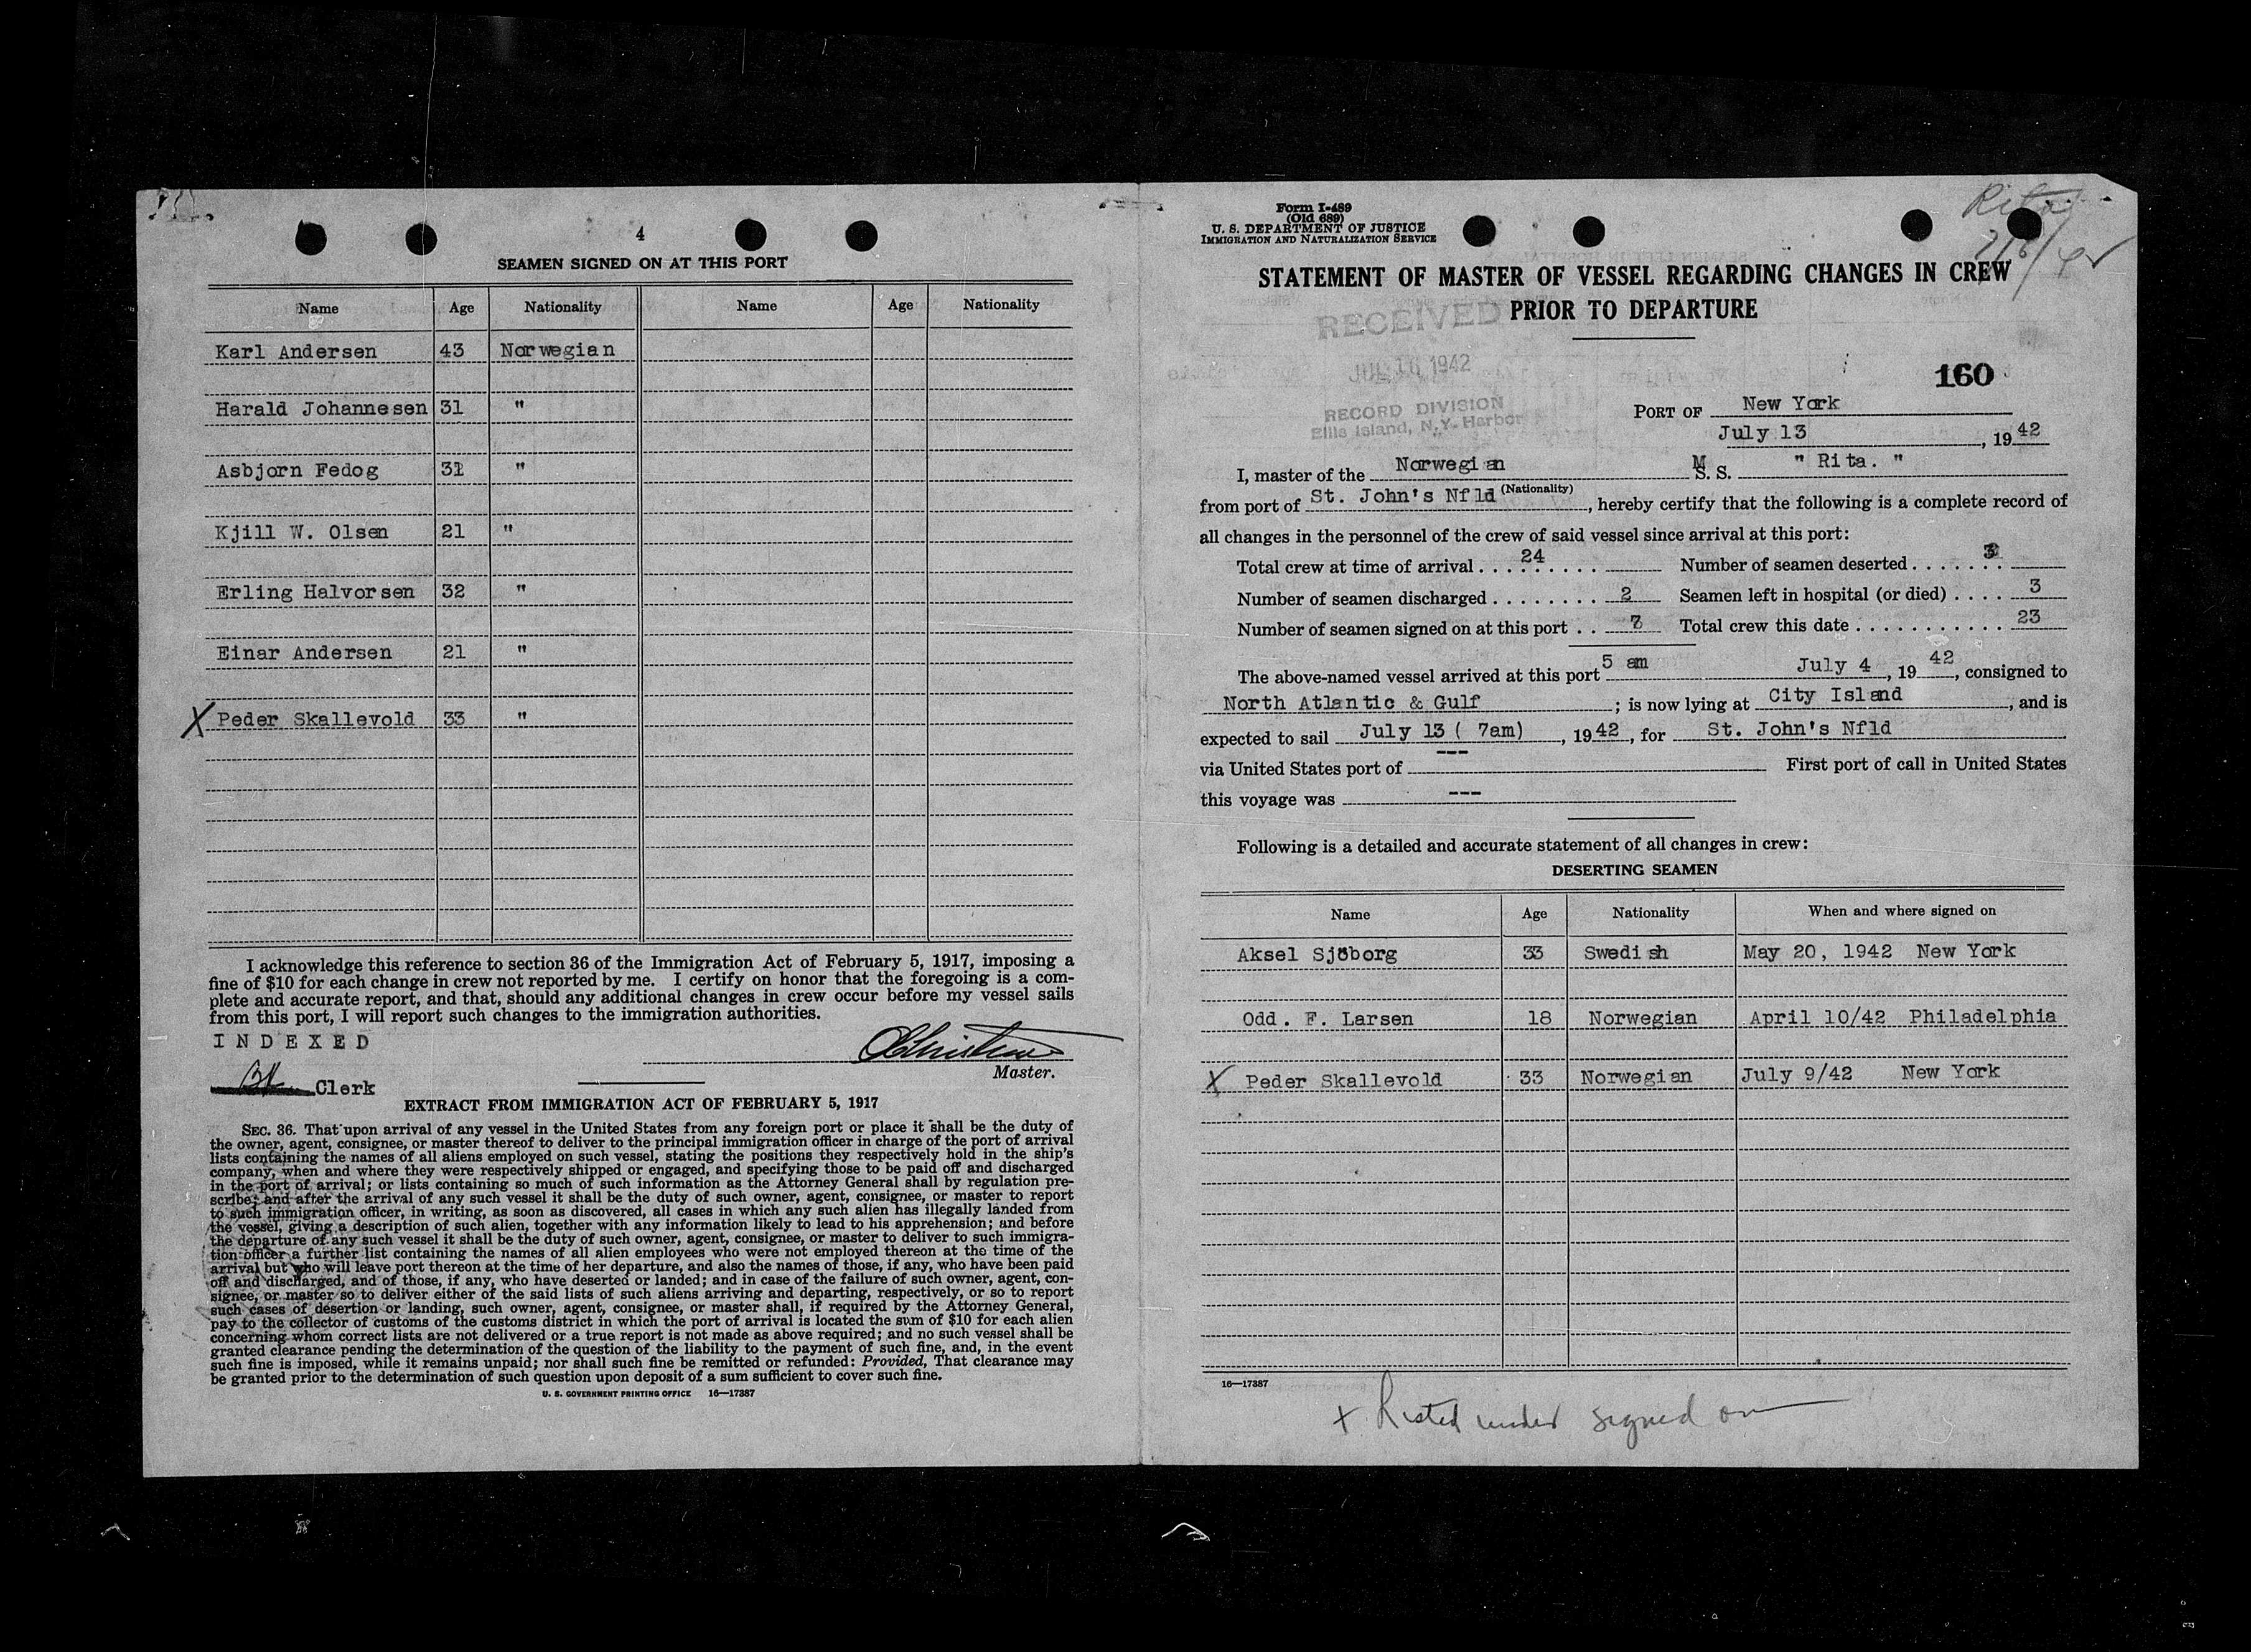 4
SEAMEN SIGNED ON AT THIS PORT
Name Age Nationality Name Age Nationality
Karl Andersen 43 Norwegian
Harald Johannesen 31 "
Asbjorn Fedog 31 "
Kjill W. Olsen 21 "
Erling Halvorsen 32 "
Einar Andersen 21 "
X Peder Skallevold 33 "
I acknowledge this reference to section 36 of the Immigration Act of February 5, 1917, imposing a
fine of $10 for each change in crew not reported by me. I certify on honor that the foregoing is a com-
plete and accurate report, and that, should any additional changes in crew occur before my vessel sails
from this port, I will report such changes to the immigration authorities.
INDEXED
Master.
Clerk
EXTRACT FROM IMMIGRATION ACT OF FEBRUARY 5, 1917
SEC. 36. That upon arrival of any vessel in the United States from any foreign port or place it shall be the duty of
the owner, agent, consignee, or master thereof to deliver to the principal immigration officer in charge of the port of arrival
lists containing the names of all aliens employed on such vessel, stating the positions they respectively hold in the ship's
company, when and where they were respectively shipped or engaged, and specifying those to be paid off and discharged
in the port of arrival; or lists containing so much of such information as the Attorney General shall by regulation pre-
scribe; and after the arrival of any such vessel it shall be the duty of such owner, agent, consignee, or master to report
to such immigration officer, in writing, as soon as discovered, all cases in which any such alien has illegally landed from
the vessel, giving a description of such alien, together with any information likely to lead to his apprehension; and before
the departure of any such vessel it shall be the duty of such owner, agent, consignee, or master to deliver to such immigra-
tion officer a further list containing the names of all alien employees who were not employed thereon at the time of the
arrival but who will leave port thereon at the time of her departure, and also the names of those, if any, who have been paid
off and discharged, and of those, if any, who have deserted or landed; and in case of the failure of such owner, agent, con-
signee, or master so to deliver either of the said lists of such aliens arriving and departing, respectively, or so to report
such cases of desertion or landing, such owner, agent, consignee, or master shall, if required by the Attorney General,
pay to the collector of customs of the customs district in which the port of arrival is located the sum of $10 for each alien
concerning whom correct lists are not delivered or a true report is not made as above required; and no such vessel shall be
granted clearance pending the determination of the question of the liability to the payment of such fine, and, in the event
such fine is imposed, while it remains unpaid; nor shall such fine be remitted or refunded: Provided, That clearance may
be granted prior to the determination of such question upon deposit of a sum sufficient to cover such fine.
U. S. GOVERNMENT PRINTING OFFICE 16—17387
Form I-489
(Old 689)
U. S. DEPARTMENT OF JUSTICE
IMMIGRATION AND NATURALIZATION SERVICE
Rita
STATEMENT OF MASTER OF VESSEL REGARDING CHANGES IN CREW
PRIOR TO DEPARTURE
RECEIVED
JUL 16 1942
RECORD DIVISION
Ellis Island, N.Y. Harbor
160
PORT OF New York
July 13, 1942
I, master of the Norwegian M S. S. " Rita. "
(Nationality)
from port of St. John's Nfld, hereby certify that the following is a complete record of
all changes in the personnel of the crew of said vessel since arrival at this port:
Total crew at time of arrival . . . 24 Number of seamen deserted . . . 3
Number of seamen discharged . . . 2 Seamen left in hospital (or died) . . . . 3
Number of seamen signed on at this port . . 7 Total crew this date . . . 23
The above-named vessel arrived at this port 5 am July 4, 1942, consigned to
North Atlantic & Gulf; is now lying at City Island, and is
expected to sail July 13 ( 7am), 1942, for St. John's Nfld
via United States port of --- First port of call in United States
this voyage was ---
Following is a detailed and accurate statement of all changes in crew:
DESERTING SEAMEN
Name Age Nationality When and where signed on
Aksel Sjöborg 33 Swedish May 20, 1942 New York
Odd. F. Larsen 18 Norwegian April 10/42 Philadelphia
X Peder Skallevold 33 Norwegian July 9/42 New York
16—17387
x Listed under signed on